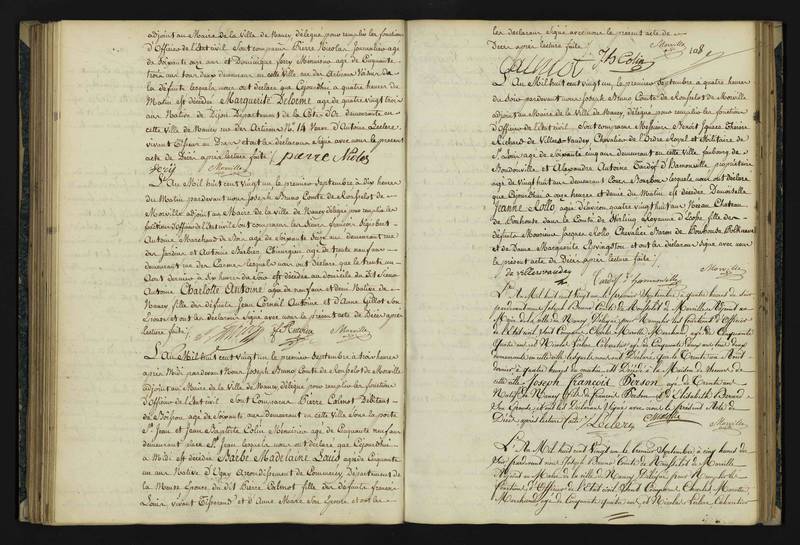 adjoint au Maire de la Ville de Nancy, délégué pour remplir les fonctions
d'Officier de l'Etat civil Sont comparus Pierre Nicolas Journalier agé
de Soixante six ans et Dominique Menuisier agé de Cinquante
trois ans tous deux demeurant en cette Ville rue des Artisans
de la défunte lesquels nous ont déclaré que Cejourd'hui à quatre heures du
Matin est décédée Marguerite Delorme agée de quatre vingt trois
ans Native de Dijon Département de la Côte d'Or demeurante en
cette Ville de Nancy rue des Artisans No. 14 Veuve d'Antoine Leclerc
vivant Tisseur en Drap et ont les déclarans Signé avec nous le présent
acte de Décès après lecture faite / pierre Nicolas
Morville
L'An Mil huit cent Vingt un le premier Septembre à dix heures
du Matin pardevant nous Joseph Bruno Comte de Ronfselot de
Morville adjoint au Maire de la Ville de Nancy délégué pour remplir les
fonctions d'Officier de l'Etat civil Sont comparus les Sieurs françois
Antoine Marchand de agé de Soixante Deux ans demeurant rue
des Jardins et Antoine Chirurgien agé de trente neuf ans
demeurant rue des Carmes lesquels nous ont déclaré que le trente un
Aout dernier à Six heures du Soir est décédée au domicile du dit Sieur
Antoine Charlotte Antoine agée de neuf ans et demi Native de
Nancy fille des défunts Jean Antoine et d'Anne Gillot Son
Epouse et ont les déclarans Signé avec nous le présent acte de Décès après
lecture faite / Morville
L'An Mil huit cent Vingt un le premier Septembre à trois heures
après Midi pardevant Nous Joseph Bruno Comte de Ronfselot de Morville
adjoint au Maire de la Ville de Nancy, délégué pour remplir les fonctions
d'Officier de l'Etat civil Sont Comparus Pierre Calmot Débitant
de Boisson agé de Soixante ans demeurant en cette Ville Sous la porte
St. Jean et Jean Baptiste Colin Menuisier agé de Cinquante neuf ans
demeurant place St. Jean lesquels nous ont déclaré que Cejourd'hui
à Midi est décédée Barbe Madelaine Louis agée de Cinquante
un ans Native d'Ugny Arrondissement de Commercy Département de
la Meuse Epouse du dit Pierre Calmot fille des défunts françois
Louis vivant Tisserand et d'Anne Marie Son Epouse et ont les
les déclarans Signé avec nous le présent acte de
Décès après lecture faite / Morville 108
Calmot JB Colin
L'An Mil huit cent Vingt un, le premier Septembre à quatre heures
du Soir pardevant nous Joseph Bruno Comte de Ronfselot de Morville
adjoint au Maire de la Ville de Nancy, délégué pour remplir les fonctions
d'Officier de l'Etat civil. Sont comparus Messieurs Benoit Ignace
Richard de Villers-Vaudey Chevalier de l'Ordre Royal et Militaire de
St. Louis agé de Soixante cinq ans demeurant en cette Ville faubourg de
Boudonville et Alexandre Antoine Tardif d'Hamonville propriétaire
agé de Vingt huit ans demeurant Cour Bourbon lesquels nous ont déclaré
que Cejourd'hui à onze heures et demie du Matin est décédée Demoiselle
Jeanne Rollo agée d'environ quatre vingt huit ans Née au Château
de Powhouse dans le Comté de Stirling Royaume d'Ecosse fille des
défunts Monsieur Jacques Rollo Chevalier Baron de Powhouse
et de Dame Marguerite Livingston et ont les déclarans Signé avec nous
le présent acte de Décès après lecture faite / Morville
de villersvaudey Tardif d'hamonville
L'An Mil huit cent Vingt un le premier Septembre à quatre heures du Soir
pardevant nous Joseph Bruno Comte de Ronfselot de Morville adjoint au
Maire de la Ville de Nancy, Délégué pour Remplir les fonctions d'Officier
de l'Etat civil Sont Comparus Charles Marchand agé de Cinquante
quatre ans et Nicolas Cabaretier agé de Cinquante Deux ans tous deux
demeurant en cette ville lesquels nous ont Déclaré que le Trente un Aout
dernier à quatre heures du matin est Décédé à la Maison de Secours de
cette ville Joseph François Person agé de Trente ans
Natif de Nancy fils de François Person et d'Elisabeth
Son Epouse, et ont les Déclarans Signé avec nous le présent Acte de
Décès après lecture faite / Leclerc Morville
L'An Mil huit cent Vingt un le premier Septembre à cinq heures du
Soir pardevant nous Joseph Bruno Comte de Ronfselot de Morville
adjoint au Maire de la ville de Nancy Délégué pour Remplir les
fonctions d'Officier de l'Etat civil, Sont Comparus Charles
Marchand, agé de Cinquante quatre ans et Nicolas Cabaretier